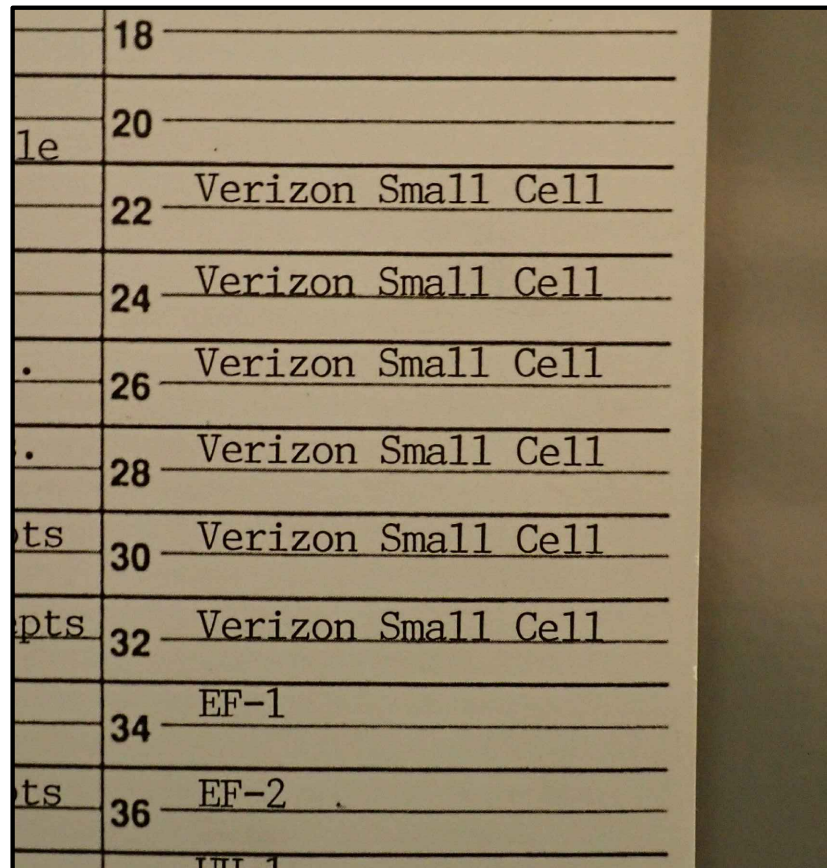 18
20
le
22 Verizon Small Cell
24 Verizon Small Cell
26 Verizon Small Cell
28 Verizon Small Cell
ts
30 Verizon Small Cell
pts
32 Verizon Small Cell
34 EF-1
ts
36 EF-2